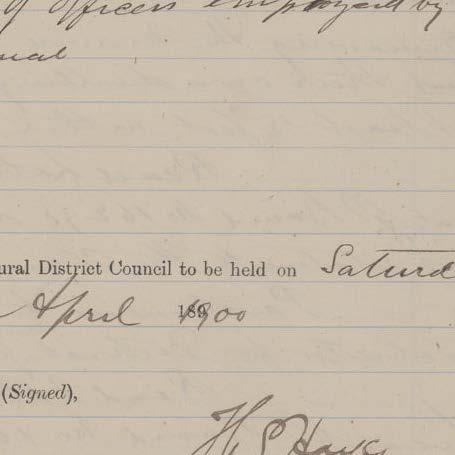 of Officers employed by
ural District Council to be held on Saturd
April 1900
(Signed),